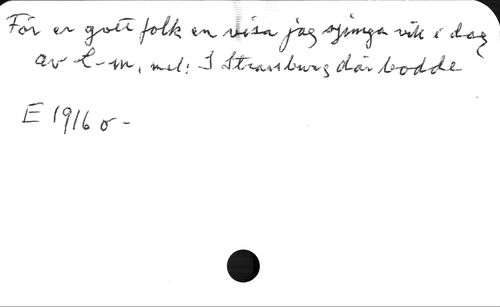 För er gott folk en visa jag sjunga vill i dag
av L-m, mel: I Strassburg där bodde
E 1916 o -